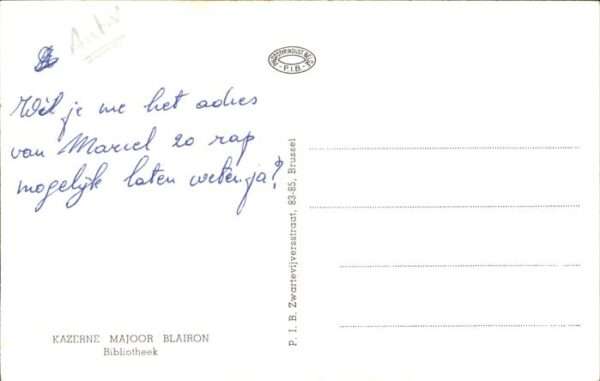 Wil je me het adres
van Marcel zo rap
mogelijk laten weten ja?
KAZERNE MAJOOR BLAIRON
Bibliotheek
P. I. B. Zwartevijversstraat, 83-85, Brussel
P.I.B.